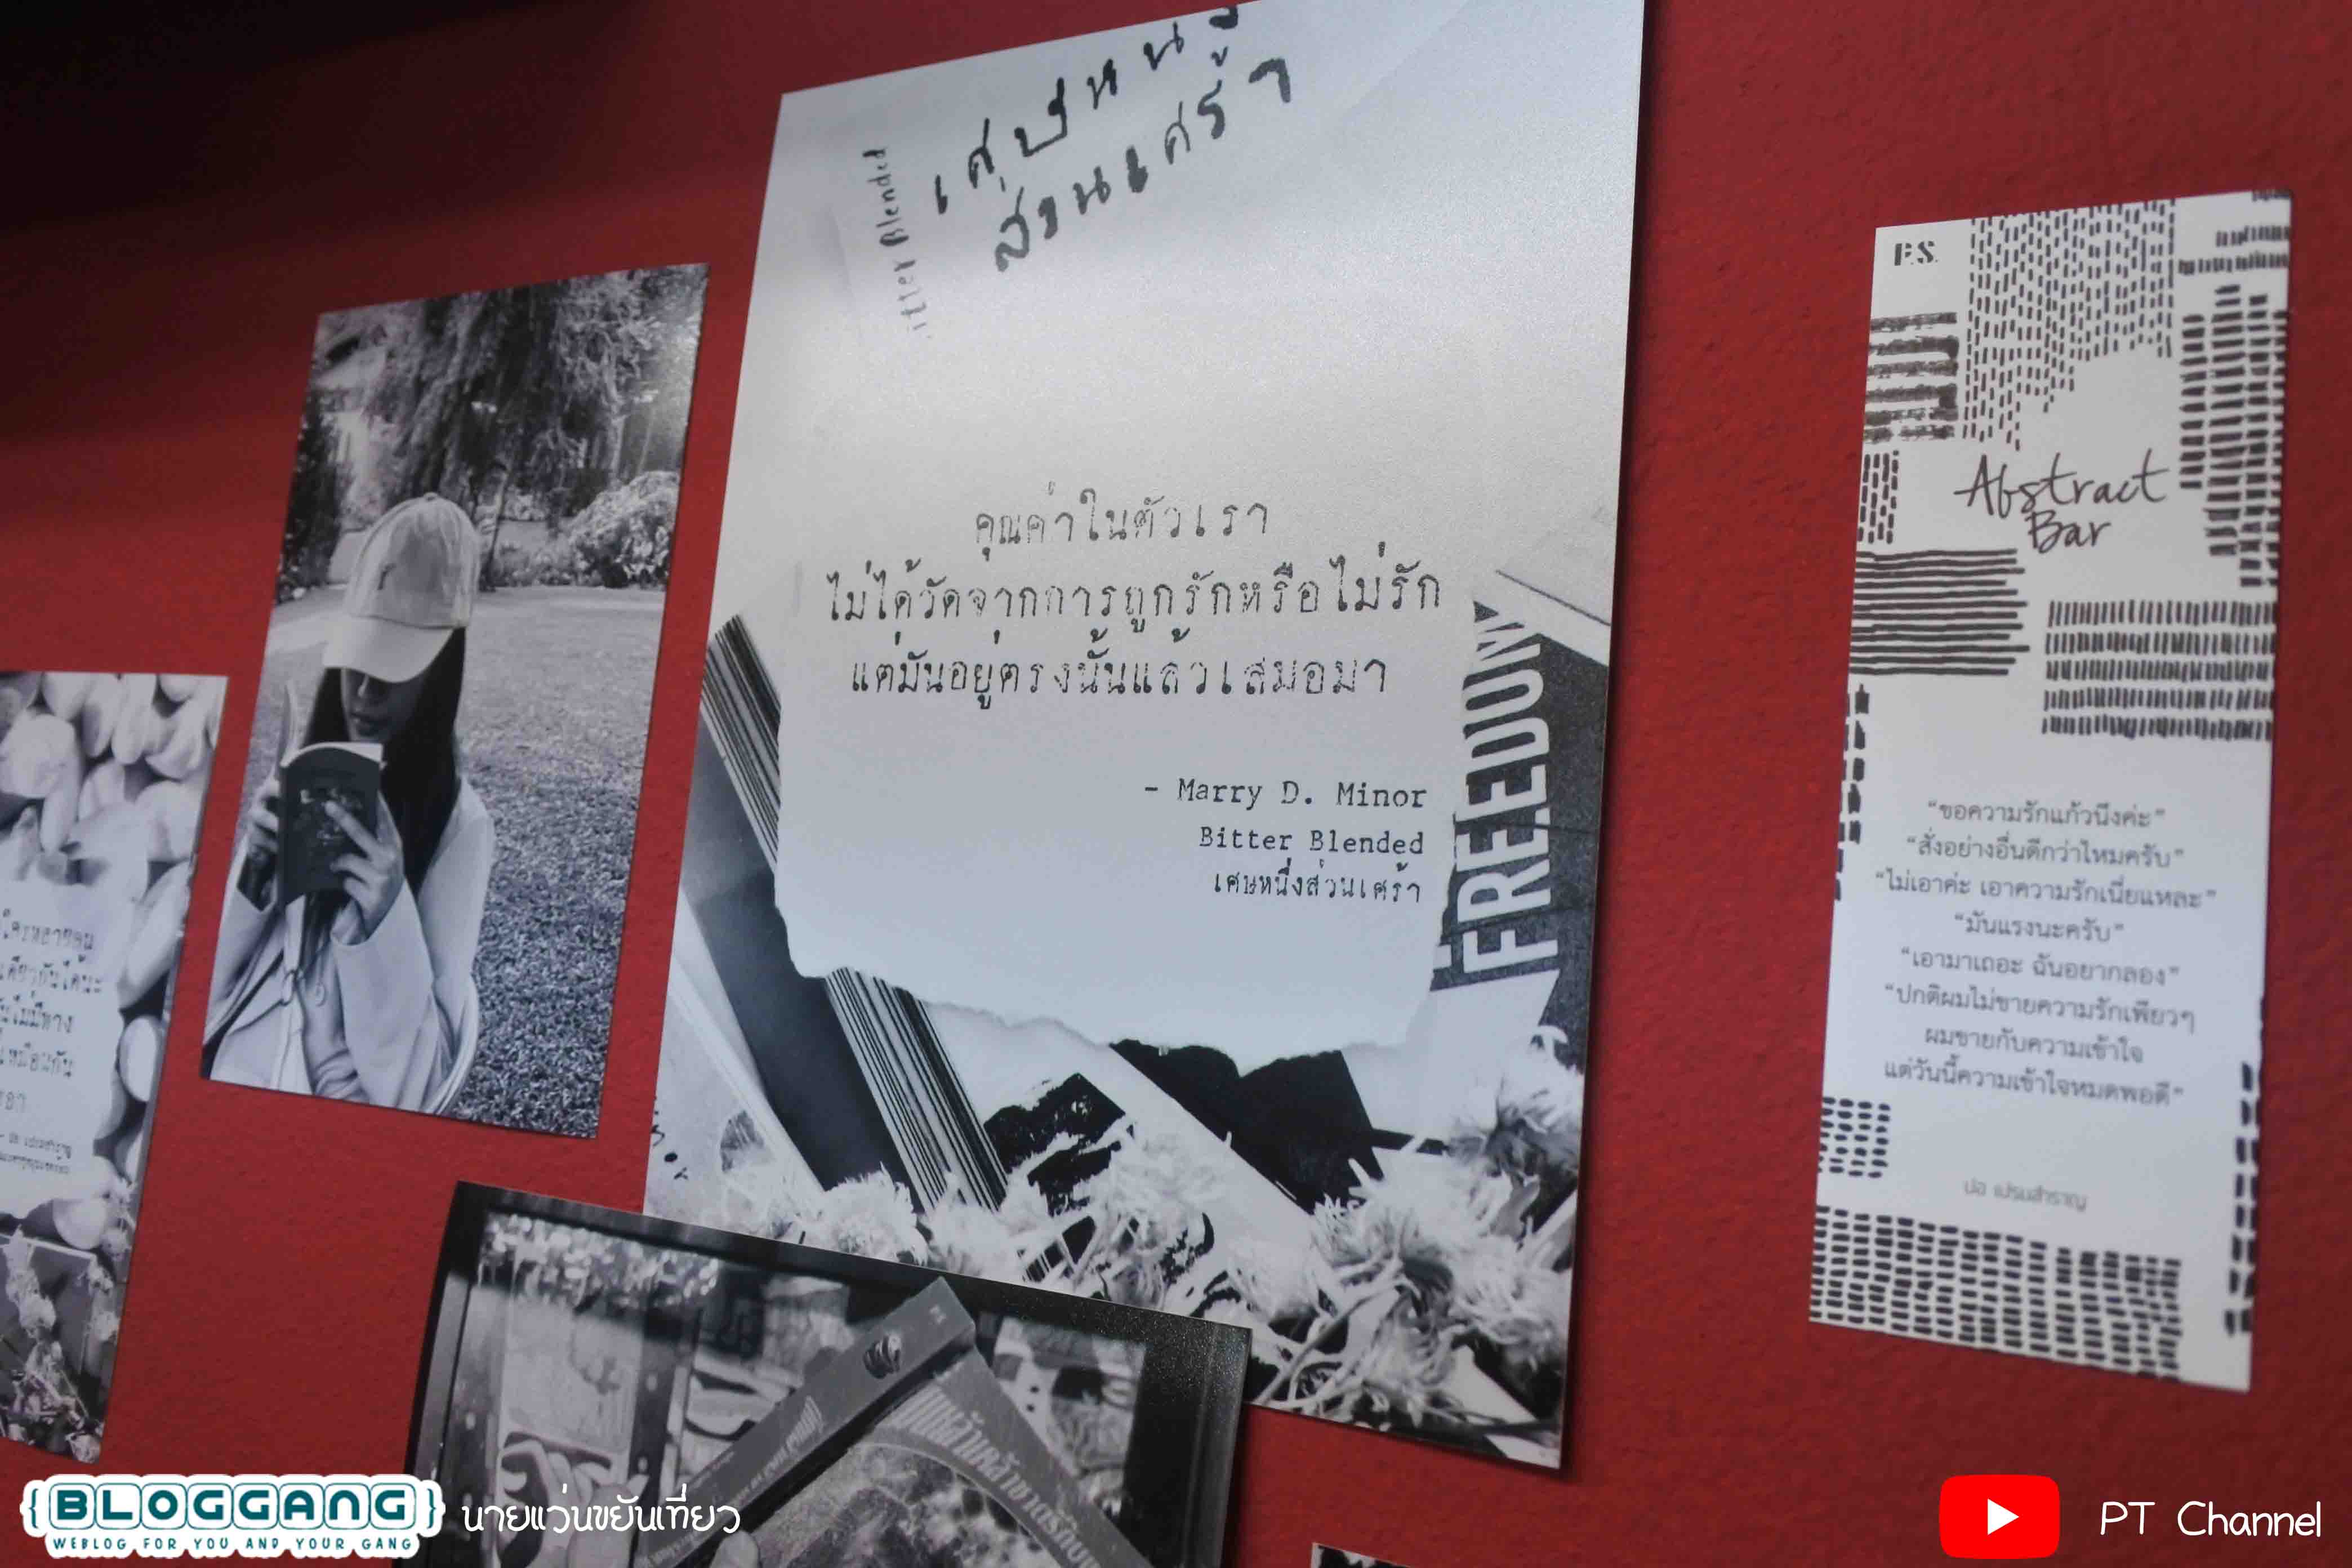 เศษหนึ่ง
ส่วนเศร้า
Bitter Blended
คุณค่าในตัวเรา
ไม่ได้วัดจากการถูกรักหรือไม่รัก
แต่มันอยู่ตรงนั้นแล้วเสมอมา
- Marry D. Minor
Bitter Blended
เศษหนึ่งส่วนเศร้า
FREEDOM
P.S.
Abstract
Bar
“ขอความรักแก้วนึงค่ะ”
“สั่งอย่างอื่นดีกว่าไหมครับ”
“ไม่เอาค่ะ เอาความรักเนี่ยแหละ”
“มันแรงนะครับ”
“เอามาเถอะ ฉันอยากลอง”
“ปกติผมไม่ขายความรักเพียวๆ
ผมขายกับความเข้าใจ
แต่วันนี้ความเข้าใจหมดพอดี”
ปอ เปรมสำราญ
{BLOGGANG}
WEBLOG FOR YOU AND YOUR GANG
นายแว่นขยันเที่ยว
PT Channel